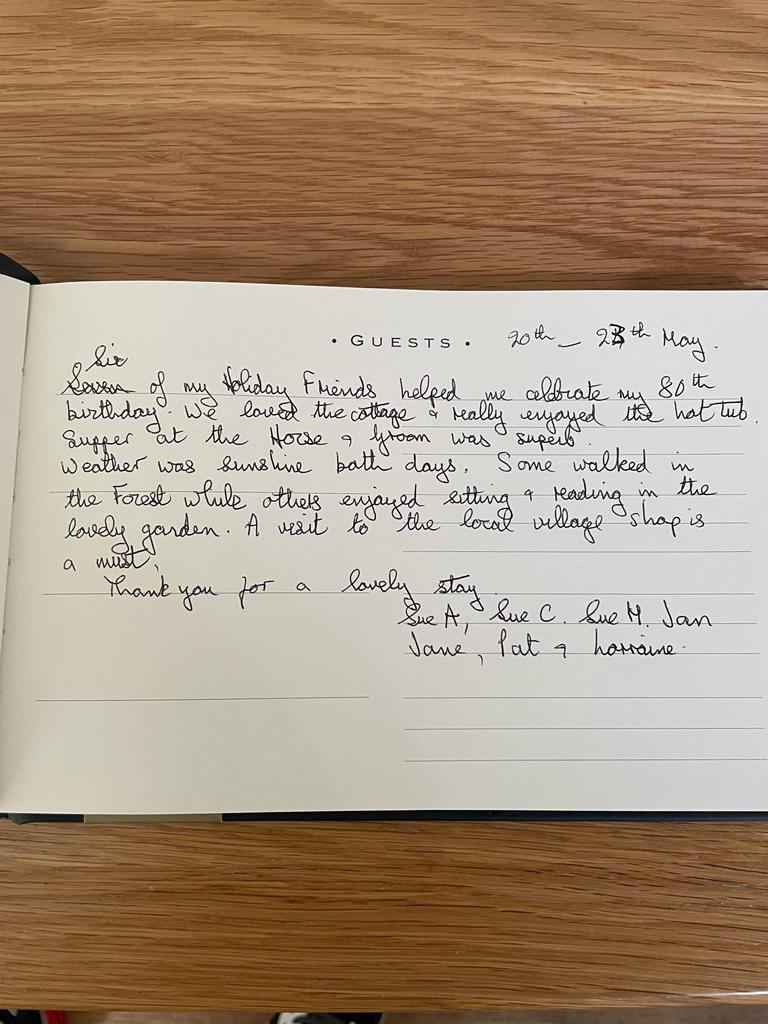 • GUESTS • 20th – 23th May.
Six
Seven of my Holiday Friends helped me celbrate my 80th
birthday. We loved the cottage & really enjoyed the hot tub.
Supper at the Horse & Groom was superb.
Weather was sunshine both days. Some walked in
the Forest while others enjoyed sitting & reading in the
lovely garden. A visit to the local village shop is
a must.
Thank you for a lovely stay
Sue A, Sue C. Sue M. Jan
Jane, Pat & Lorraine.